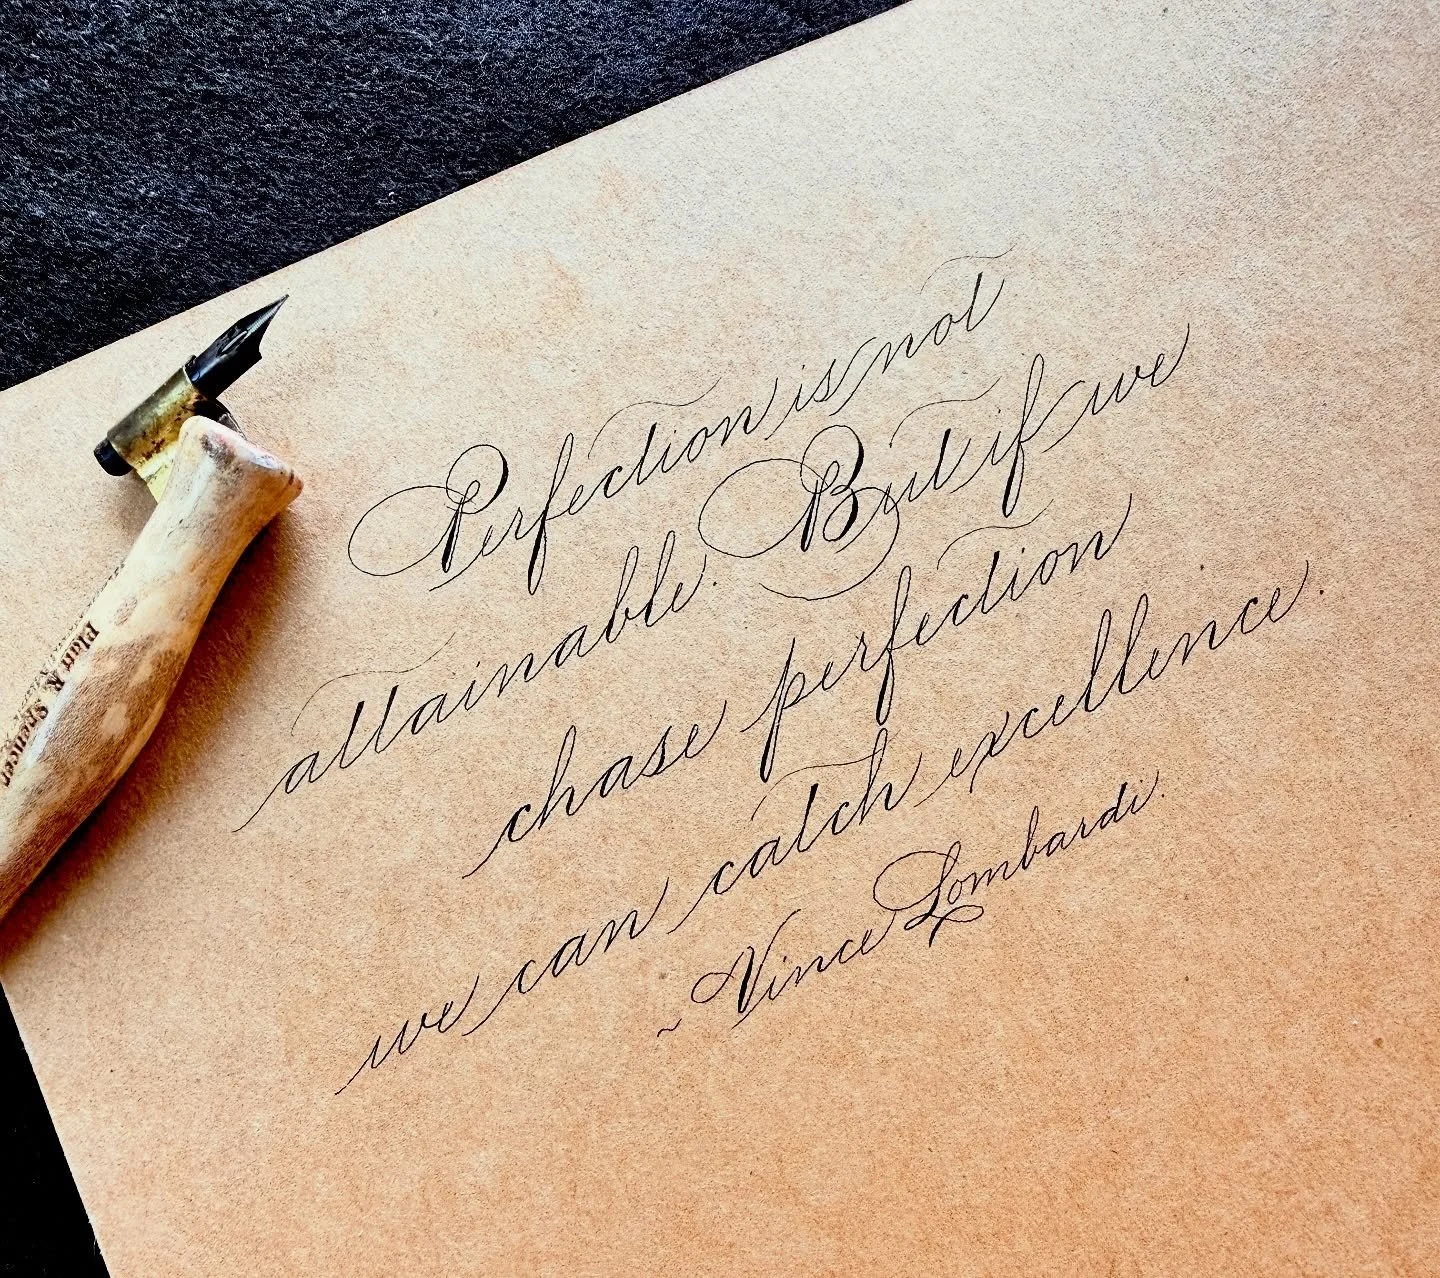 Perfection is not
attainable. But if we
chase perfection
we can catch excellence.
~ Vince Lombardi.
Platt R. Spencer